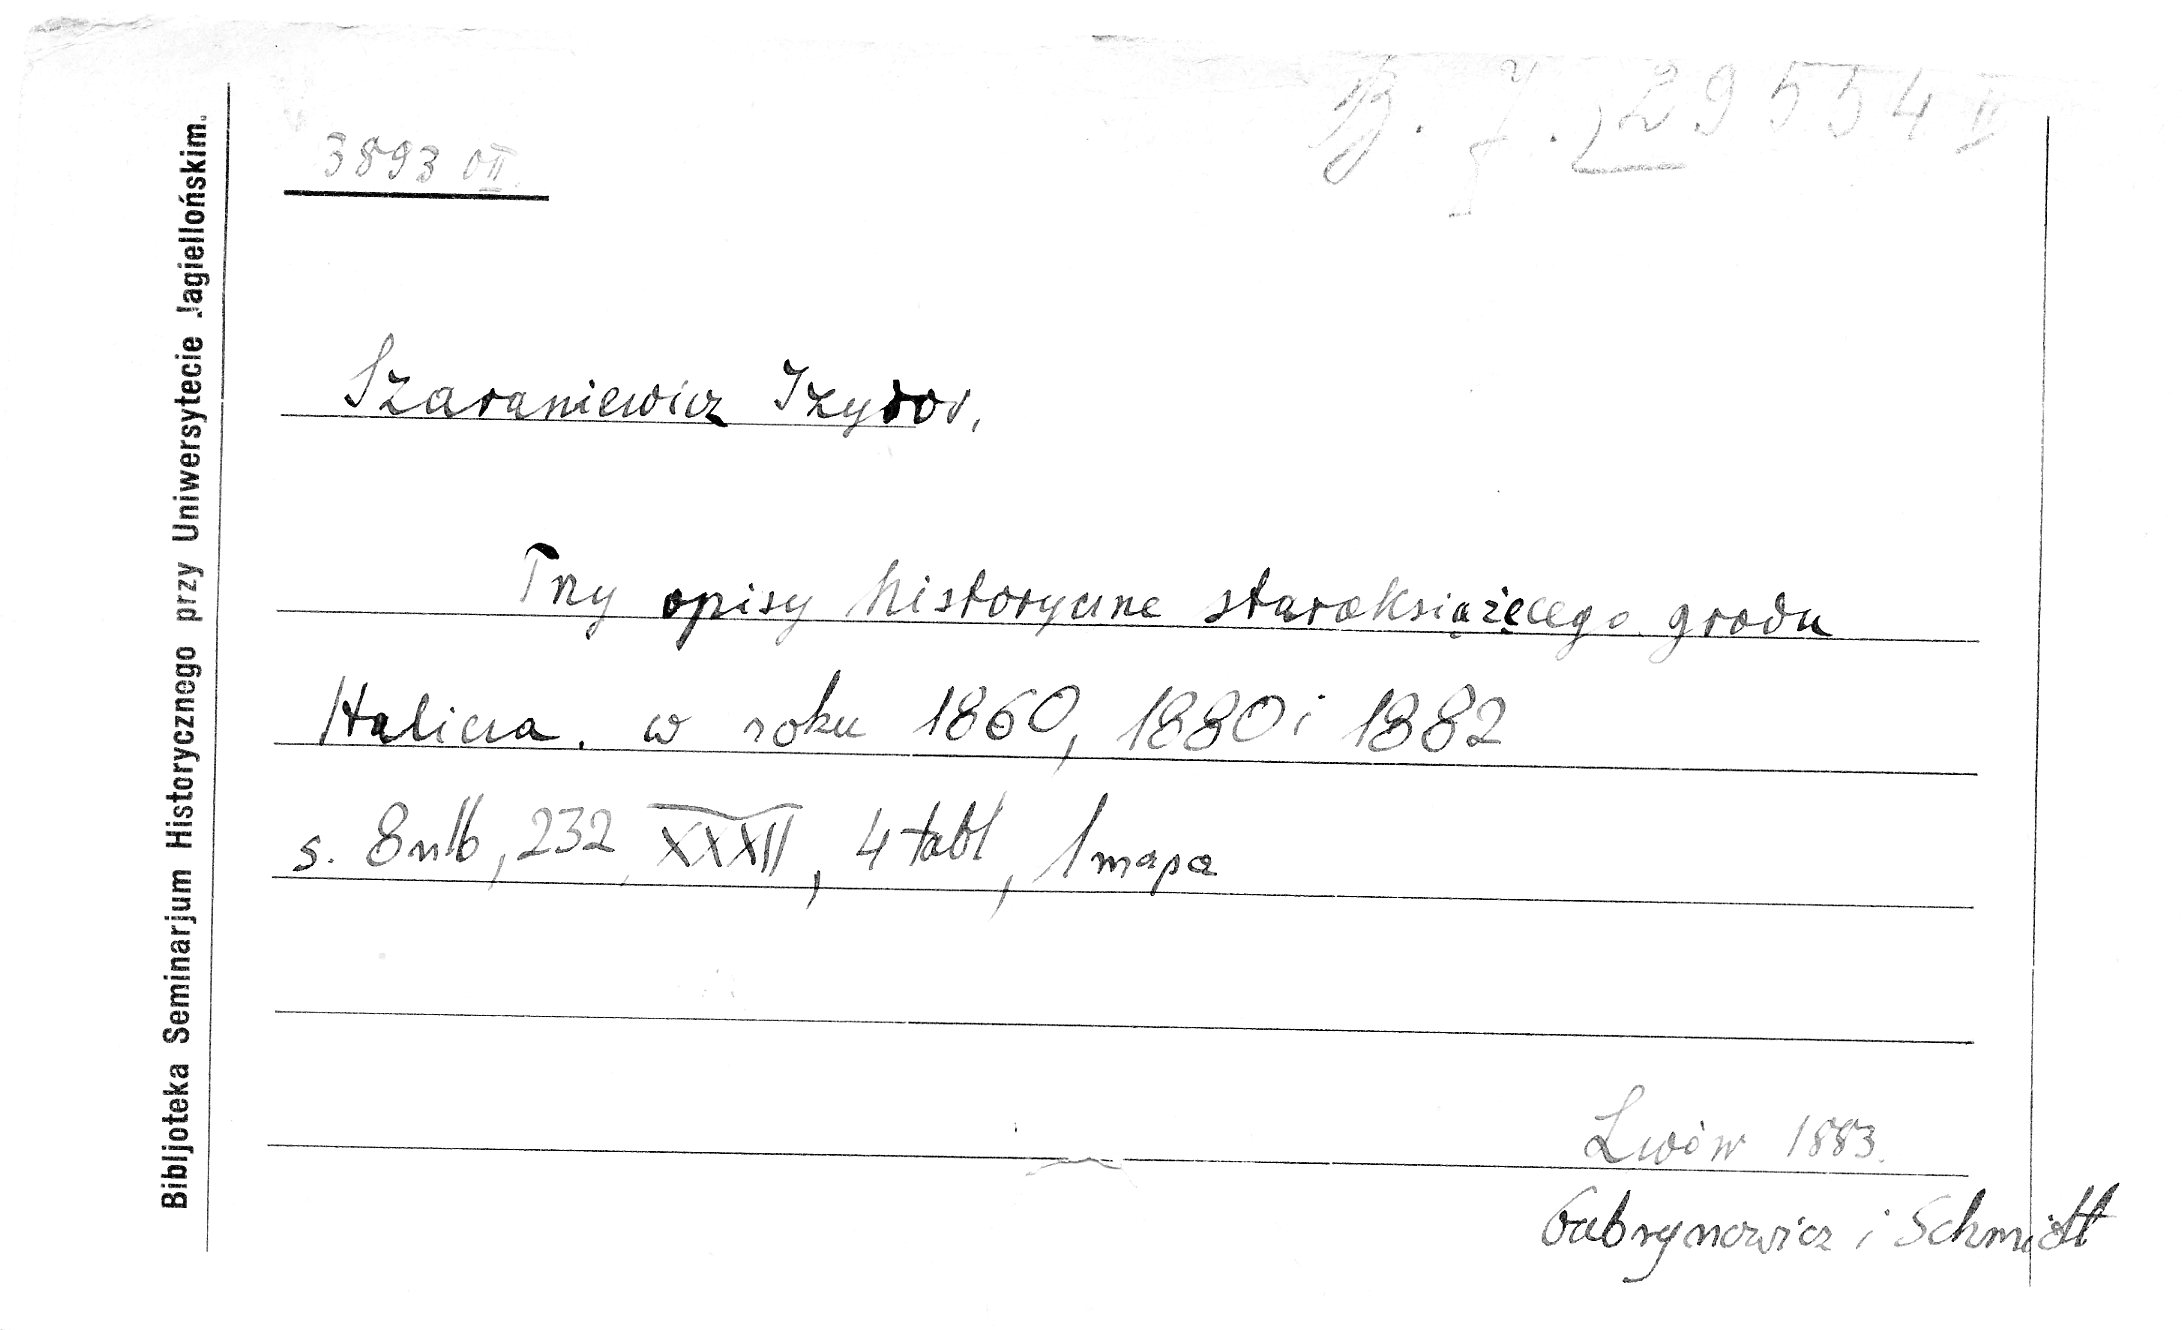 B. J. 29554 II
3893 OII.
Szaraniewicz Izydor.
Trzy opisy historyczne staroksiążęcego grodu
Halicza. w roku 1860, 1880 i 1882
s. 8 nlb, 232, XXXII, 4 tabl, 1 mapa
Lwów 1883.
Gubrynowicz i Schmidt
Bibljoteka Seminarjum Historycznego przy Uniwersytecie Jagiellońskim.